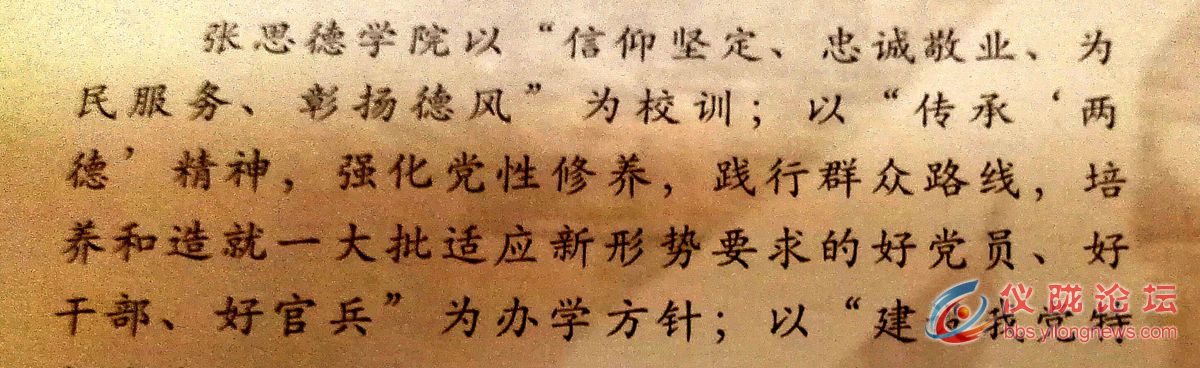 张思德学院以“信仰坚定、忠诚敬业、为
民服务、彰扬德风”为校训；以“传承‘两
德’精神，强化党性修养，践行群众路线，培
养和造就一大批适应新形势要求的好党员、好
干部、好官兵”为办学方针；以“建 我党特
仪陇论坛
bbs.yilongnews.com